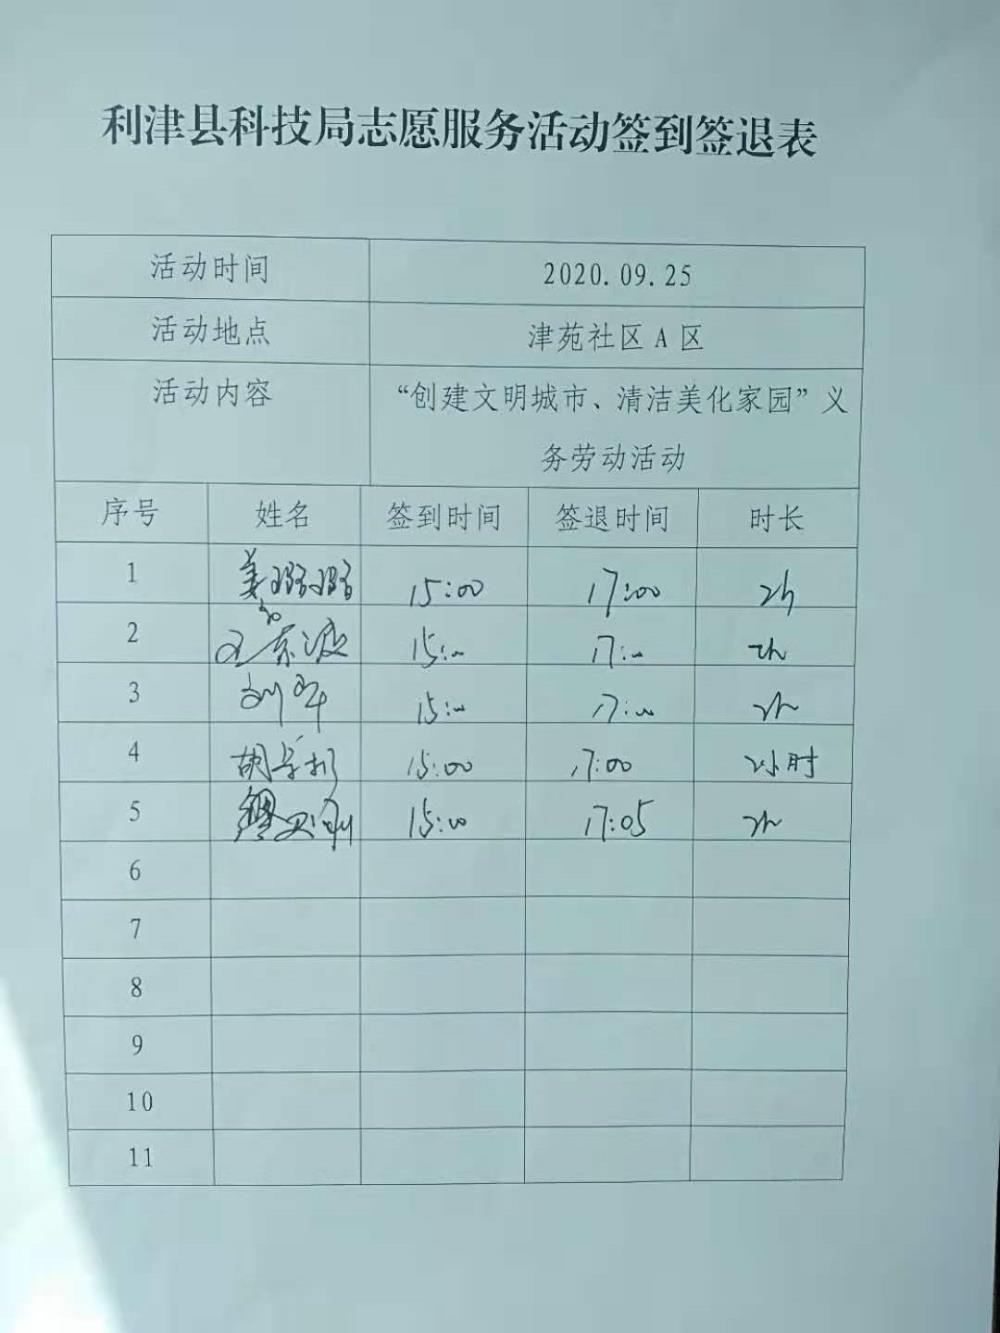 利津县科技局志愿服务活动签到签退表
活动时间 2020.09.25
活动地点 津苑社区 A 区
活动内容 “创建文明城市、清洁美化家园”义
务劳动活动
序号 姓名 签到时间 签退时间 时长
1 姜璐璐 15:00 17:00 2h
2 15:00 17:00 2h
3 刘军 15:00 17:00 2h
4 胡 15:00 17:00 2小时
5 15:00 17:05 2h
6
7
8
9
10
11